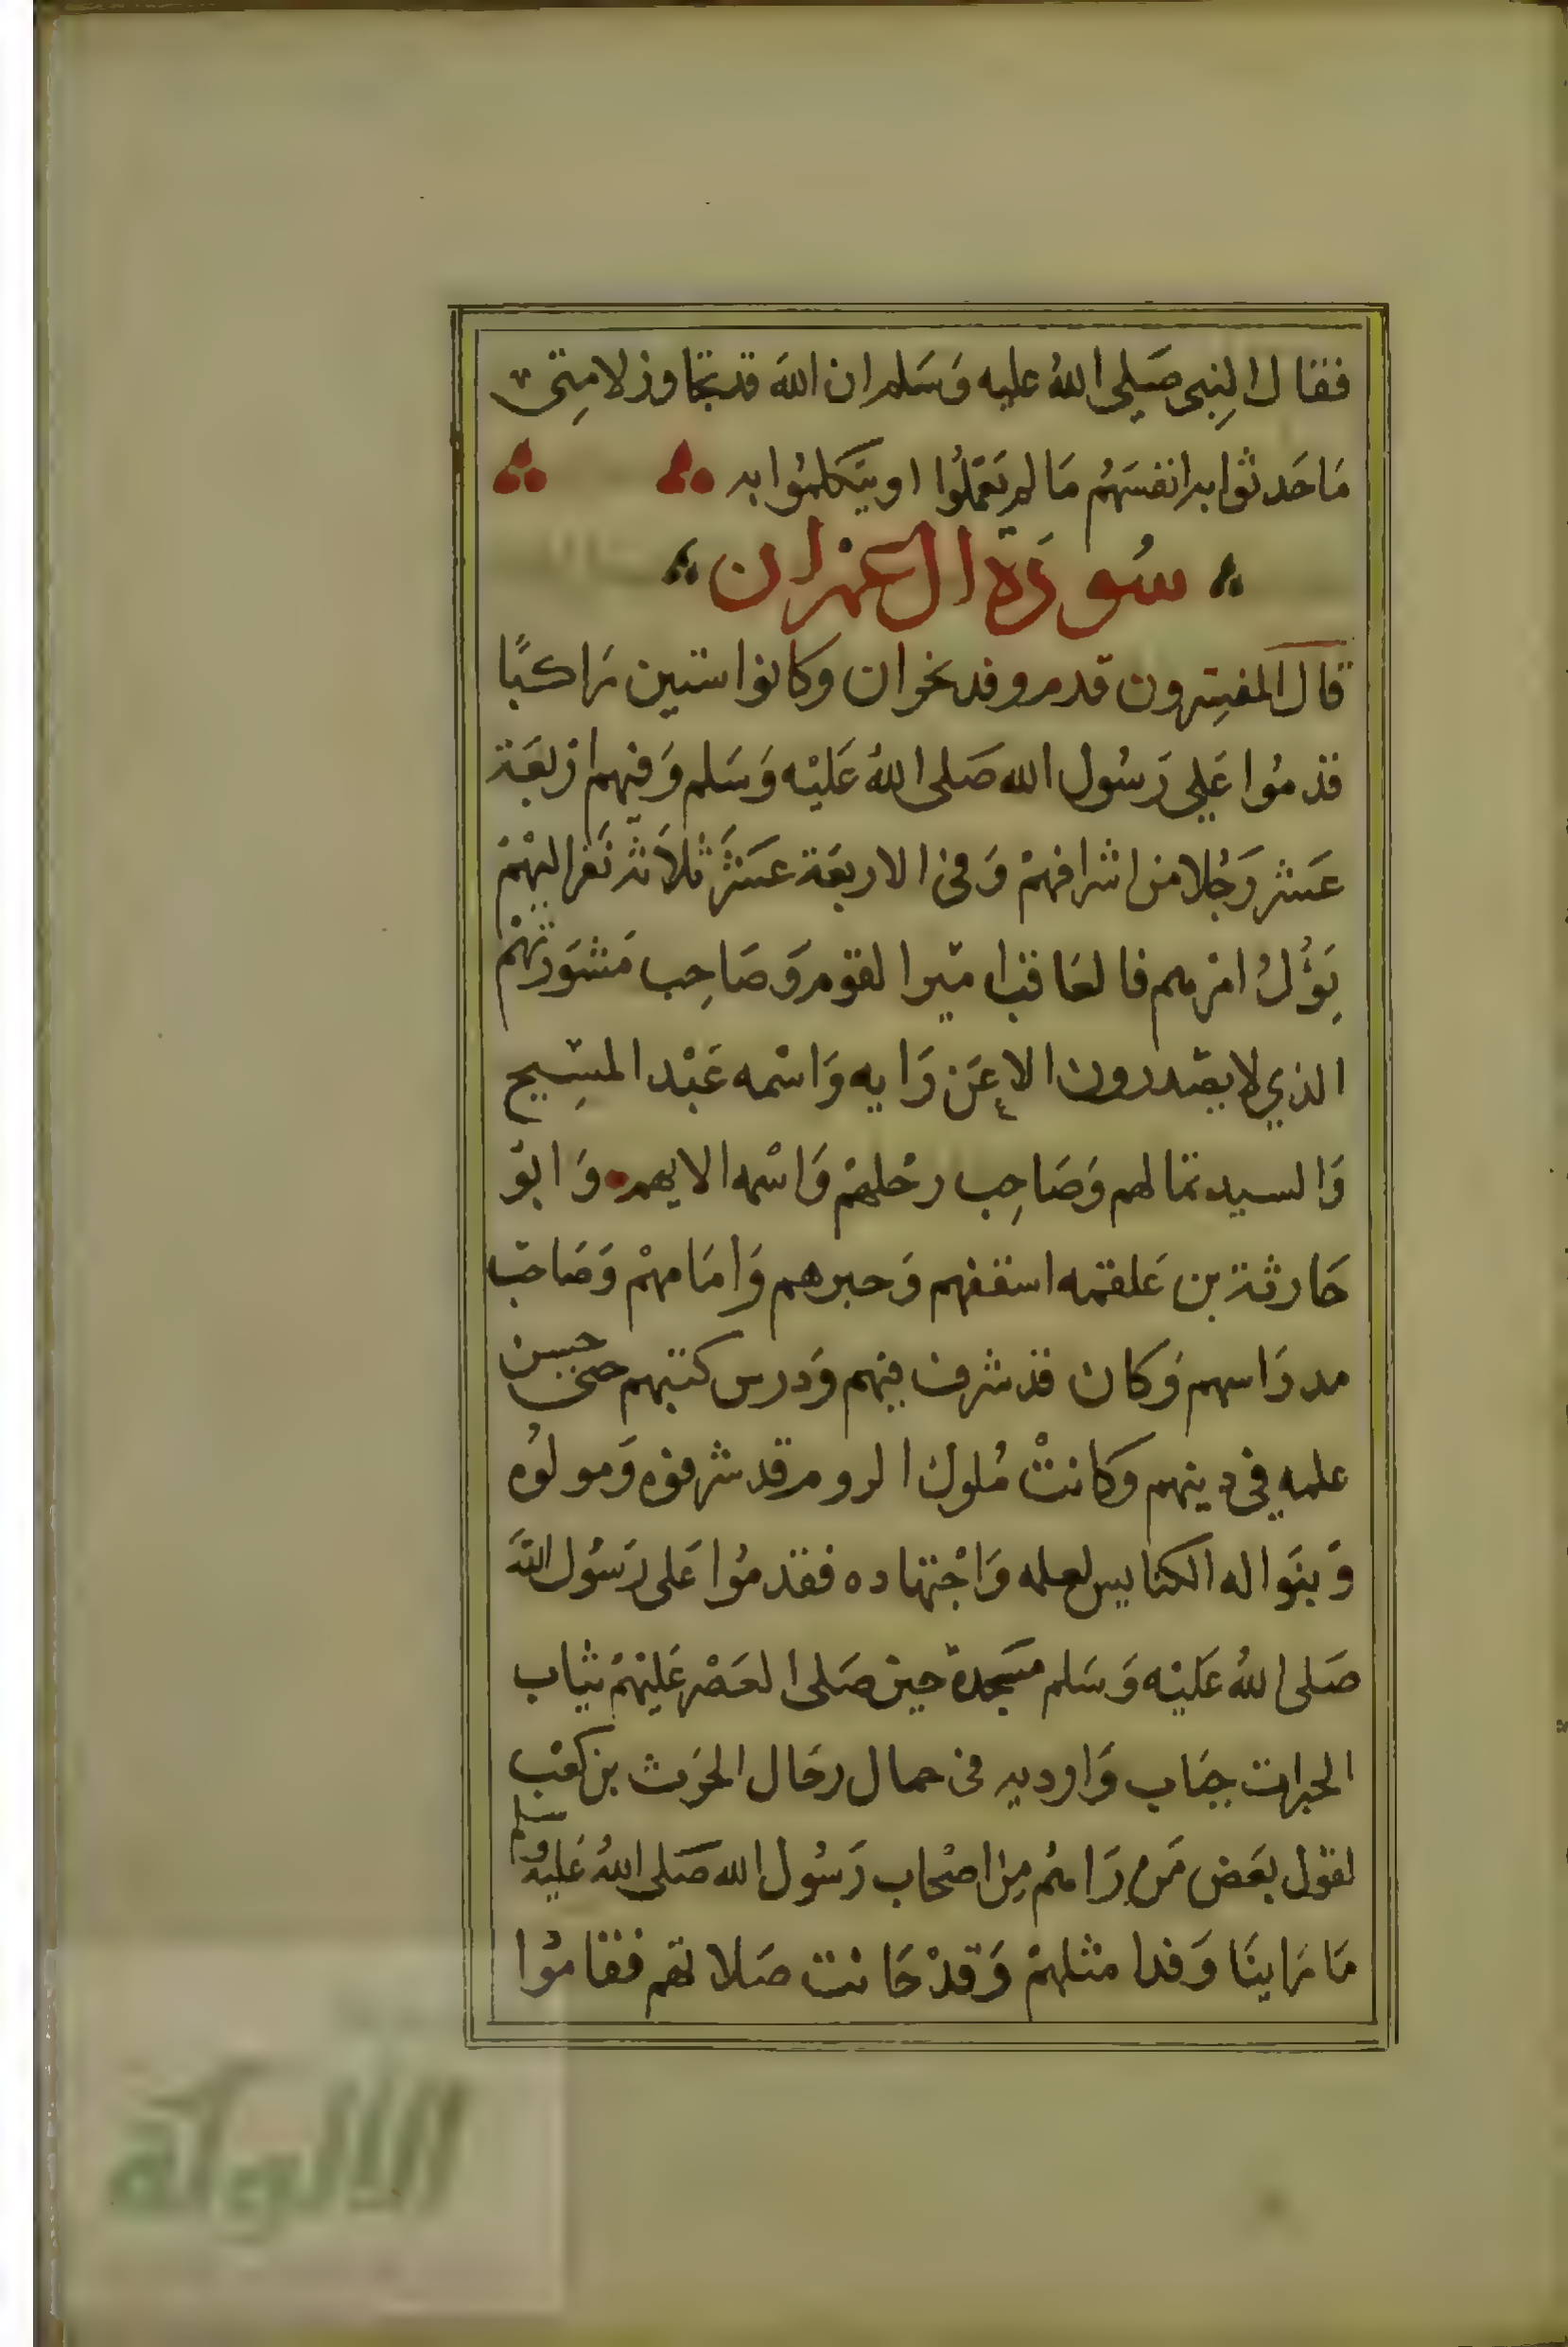 فقال النبي صَلي اللهُ عليه وَسَلم ان اللهَ قد تجاوز لامتي
مَا حَدثوا به انفسَهُم مَا لم يَعمَلُوا او يتكلمُوا به
سُورَة ال عمران
قال المفسِرون قدم وفد نجران وكانوا ستين رَاكبًا
قدمُوا عَلي رَسُول الله صَلى اللهُ عَليْه وَسَلم وَفيهم ارْبعَة
عَشر رَجُلا من اشرافهمْ وَفي الاربعَة عَشَر ثلاَثة نَفر اليهْمْ
يَؤُلُ امْرهم فالعَاقب امير القوم وَصَاحِب مَشوَرتهْم
الذي لا يصْدرون الا عَن رَايه وَاسْمه عَبْد المسِيح
وَالسيد ثمالهم وَصَاحِب رحْلهمْ وَاسْمه الايهم وَابوُ
حَارثة بن عَلقمه اسقفهم وَحبرهم وَامَامهْم وَصَاحب
مدرَاسهم وَكان قد شرف فيهم وَدرس كتبهم حتى حسن
علمه في دينهم وكانتْ مُلوك الروم قد شرفوه وَمولوُه
وَبنَوا له الكنايس لعلمه وَاجْتهاده فقدمُوا عَلى رَسُول الله
صَلى اللهُ عَليْه وَسَلم مسَجدة حين صَلى العَصْر عَليْهمْ ثياب
الحبرات جبَاب وَاوديه في جمال رجَال الحَرث بن كعْب
لقول بعَض مَن رَاهُم مِن اصْحاب رَسُول الله صَلى اللهُ عَليْه وسلم
مَا رَاينَا وَفدا مثلهمْ وَقدْ حَانت صَلاتهم فقامُوا
الألوكة